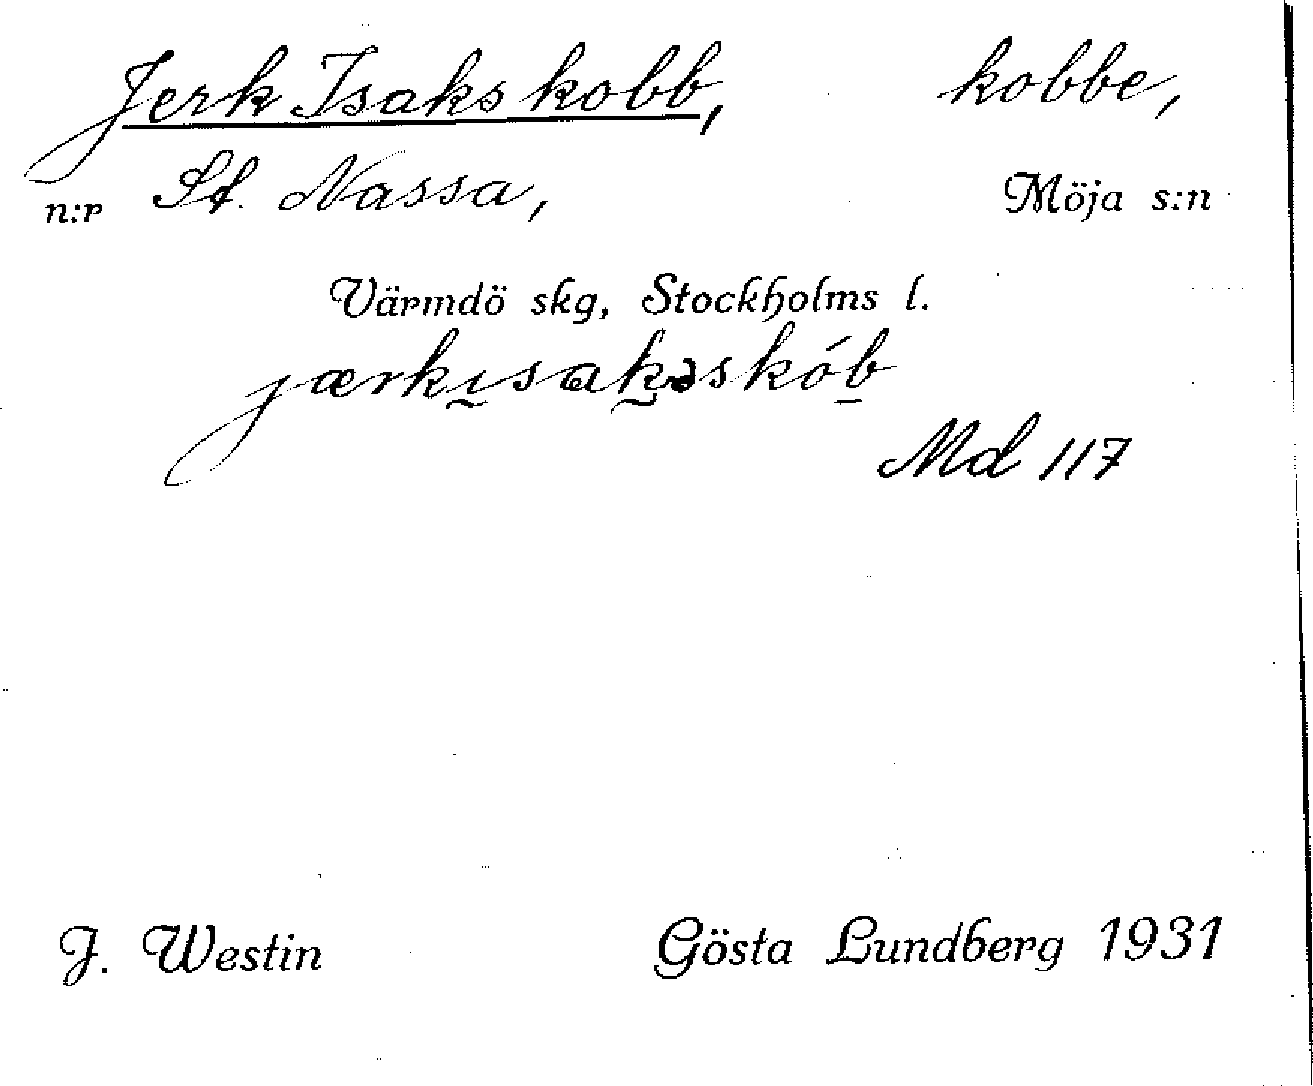 Jerk Isaks kobb, kobbe,
n:r St. Nassa, Möja s:n
Värmdö skg, Stockholms l.
jærkısakəskób
Md 117
J. Westin Gösta Lundberg 1931